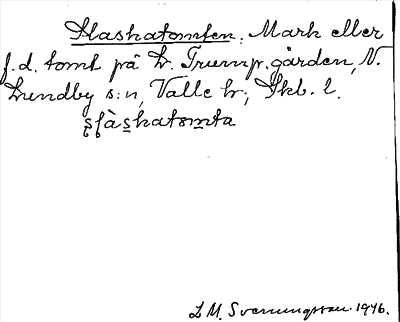 Slaskatomten. Mark eller
f. d. tomt på L. Trump.gården, N.
Lundby s:n, Valle hr; Skb. l.
şlàs̲katom̲ta
L M. Svenungsson 1946.